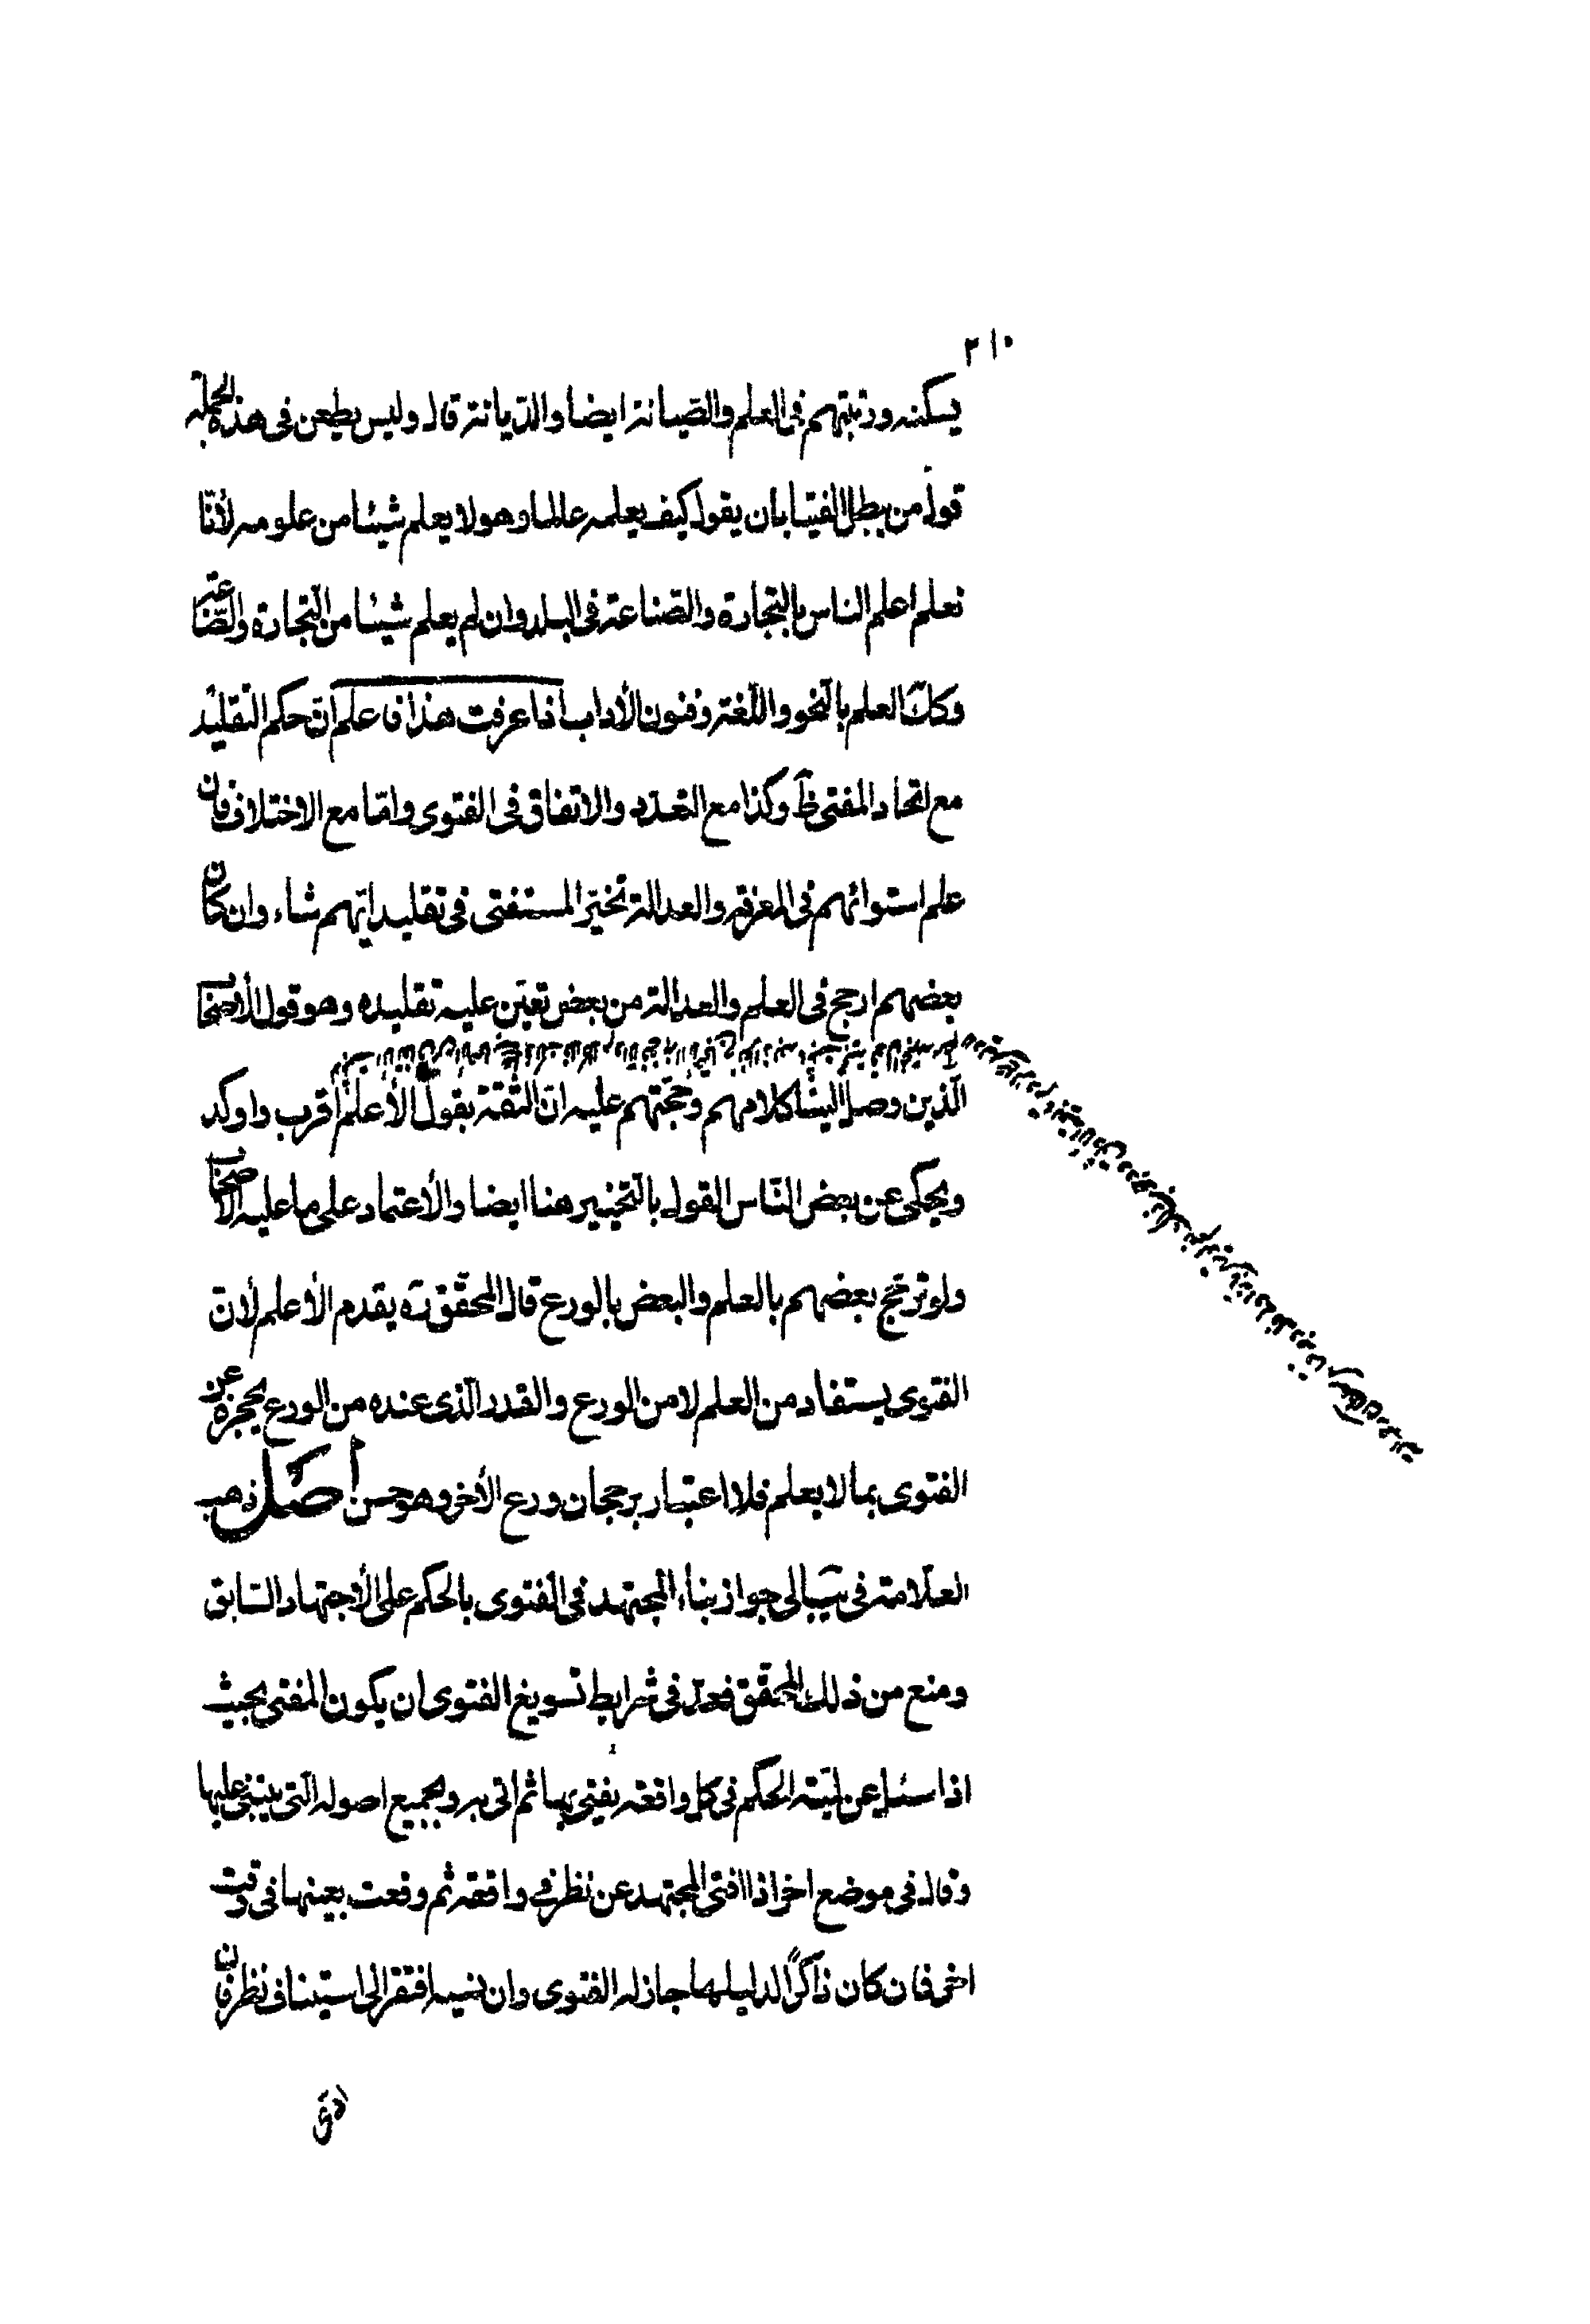 ٣١٠
يسكنه ورتبتهم فى العلم والصّيانة ايضا والدّيانة قال وليس يطعن فى هذه الجملة
قول من يبطل الفتيا بان يقول كيف يعلمه عالما وهو لا يعلم شيئا من علومه لأنّا
نعلم اعلم الناس بالتجارة والصّناعة فى البلد وان لم يعلم شيئا من التجارة والصّناعة
وكك العلم بالنّحو واللّغة وفنون الأداب اذا عرفت هذا فاعلم انّ حكم التقليد
مع اتحاد المفتى ظ وكذا مع التعدّد والاتفاق فى الفتوى وامّا مع الاختلاف فان
علم استوائهم فى المعرفة والعدالة تخيّر المستفتى فى تقليد ايّهم شاء وان كان
بعضهم ارجح فى العلم والعدالة من بعض تعيّن عليه تقليده وهو قول الأصحاب
الّذين وصل الينا كلامهم وحجّتهم عليه انّ الثّقة بقول الأعلم اقرب واوكد
ويحكى عن بعض النّاس القول بالتّخيير هنا ايضا والأعتماد على ما عليه الأصحاب
ولو ترجّح بعضهم بالعلم والبعض بالورع قال المحقّق ره يقدم الأعلم لأنّ
الفتوى يستفاد من العلم لا من الورع والقدر الّذى عنده من الورع يحجزه عن
الفتوى بما لا يعلم فلا اعتبار برجحان ورع الأخر وهو حسن أصل ذهب
العلّامة فى يب الى جواز بناء المجتهد فى الفتوى بالحكم على الأجتهاد السّابق
ومنع من ذلك المحقّق فعدّ فى شرايط تسويغ الفتوى ان يكون المفتى بحيث
اذا سئل عن لميّة الحكم فى كل واقعة يفتى بها ثم اتى به وبجميع اصوله الّتى يبتنى عليها
وقال فى موضع اخر اذا افتى المجتهد عن نظر فى واقعة ثم وقعت بعينها فى وقت
اخر فان كان ذاكرًا لدليلها جاز له الفتوى وان نسيه افتقر الى استيناف نظر فان